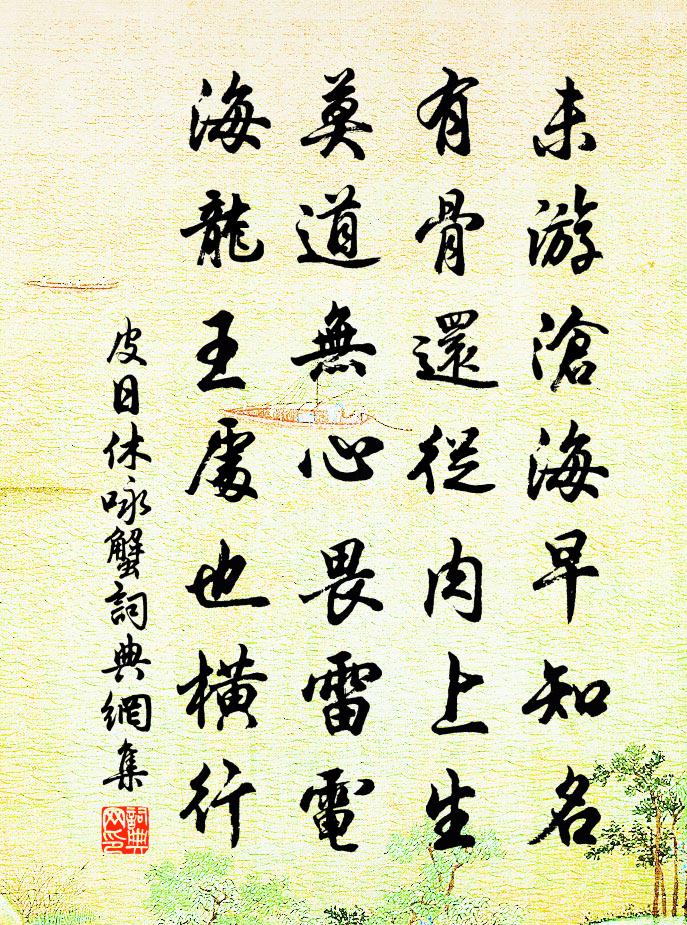 未游滄海早知名
有骨還從肉上生
莫道無心畏雷電
海龍王處也橫行
皮日休咏蟹詞典網集
詞典
网印